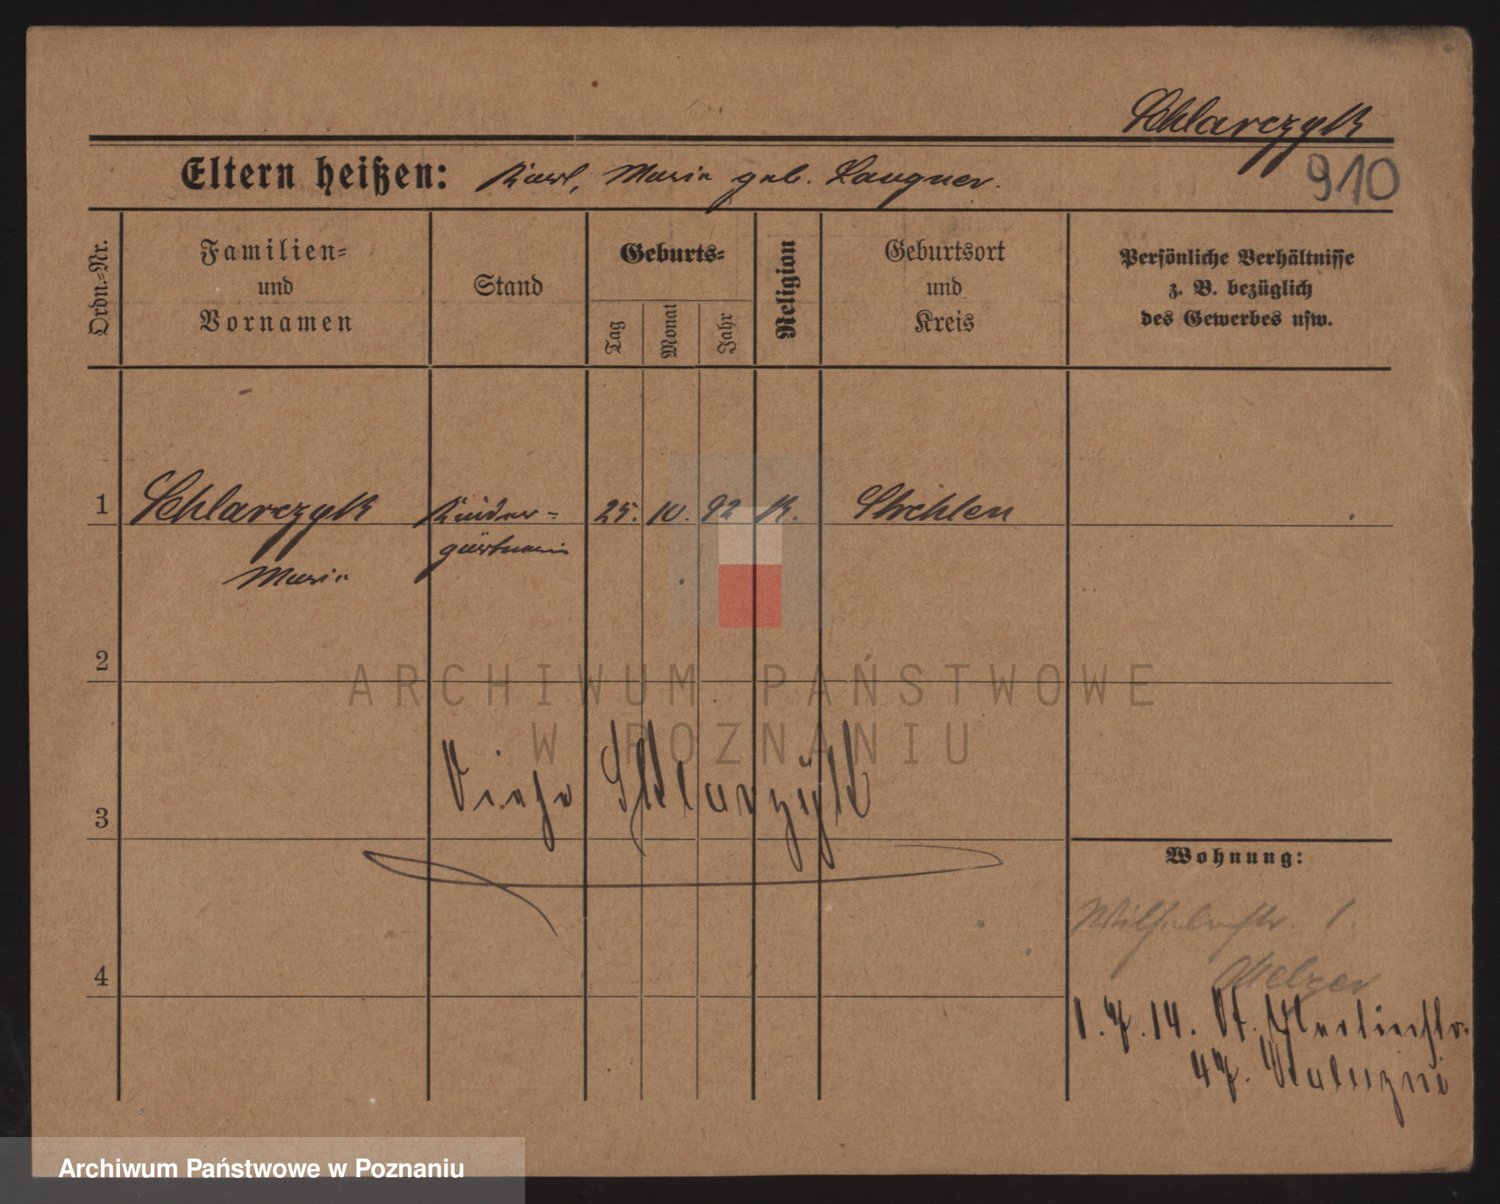 Schlarczyk
910
Eltern heißen: Karl, Maria geb. Langner.
Ordn.-Nr.
Familien-
und
Vornamen
Stand
Geburts-
Tag
Monat
Jahr
Religion
Geburtsort
und
Kreis
Persönliche Verhältnisse
z. B. bezüglich
des Gewerbes usw.
1 Schlarczyk Kinder- 25. 10. 92 K. Strehlen
gärtnerin
Maria
2
ARCHIWUM PAŃSTWOWE
W POZNANIU
Siehe Schlarzyk
3
Wohnung:
Wilhelmstr. 1.
Melzer
4
1. 7. 14. St. Martinstr.
47.
Archiwum Państwowe w Poznaniu